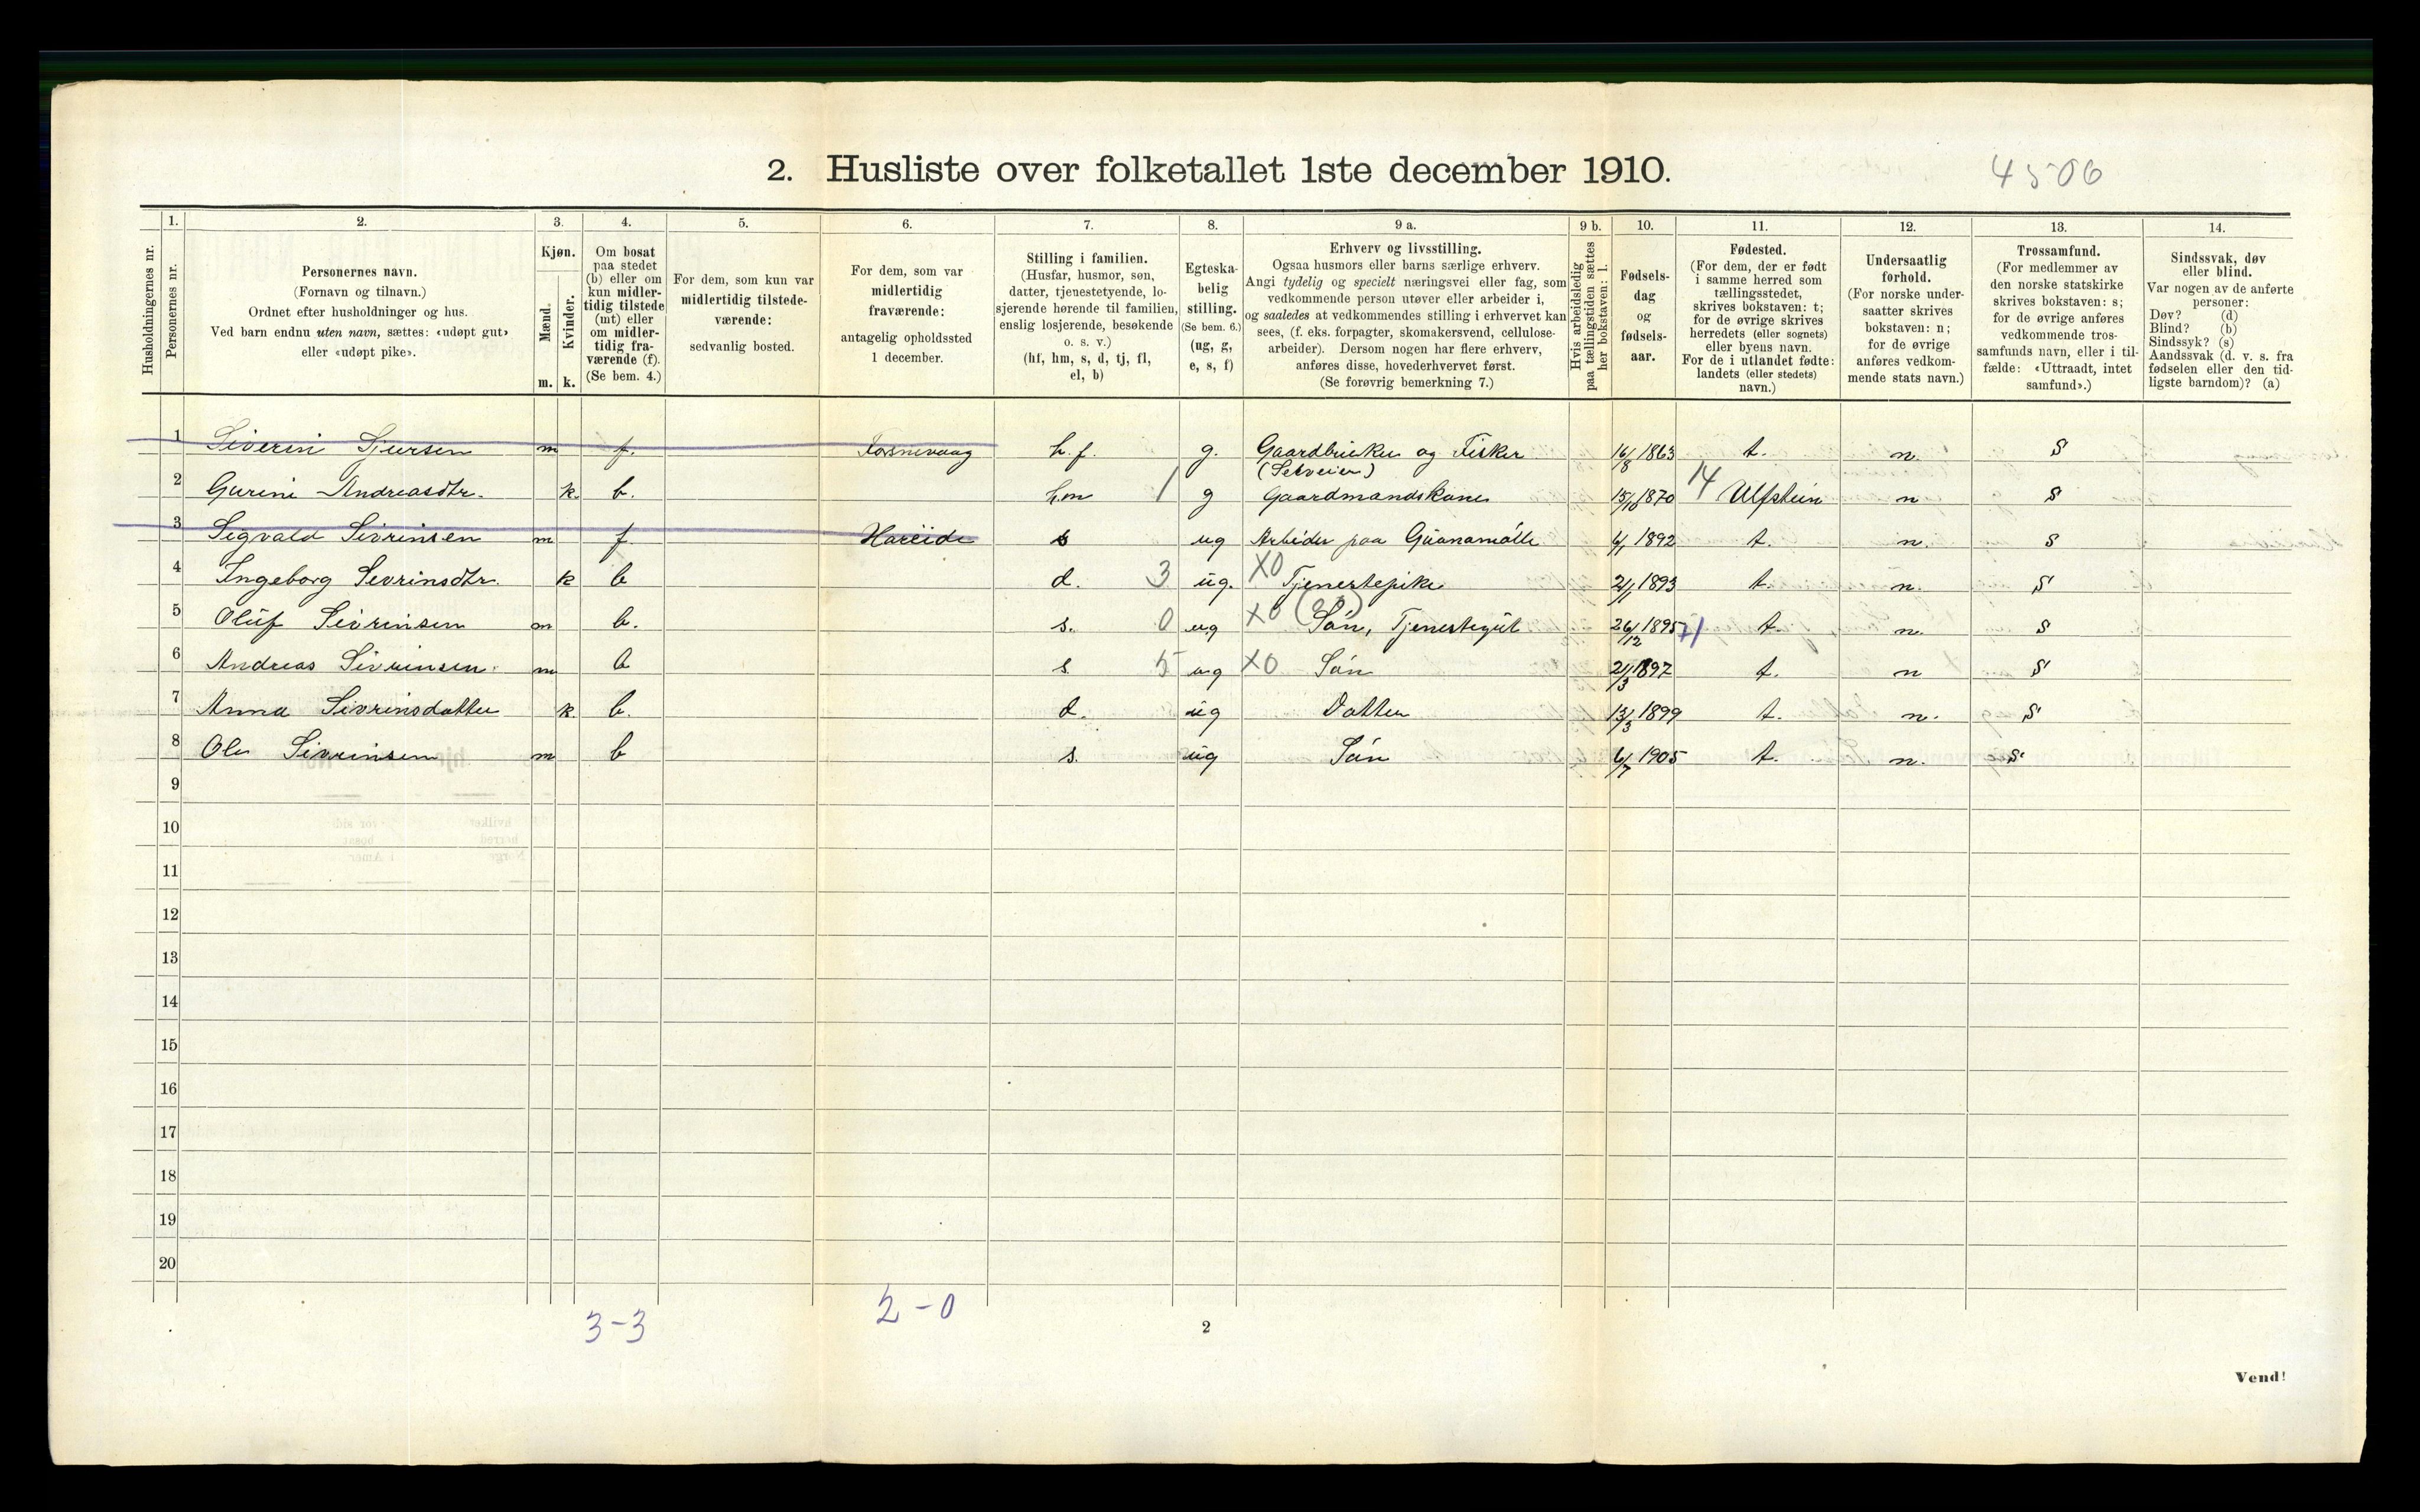 2. Husliste over folketallet 1ste december 1910.
4506
Husholdningernes nr.
1. Personernes nr.
2. Personernes navn. (Fornavn og tilnavn.) Ordnet efter husholdninger og hus. Ved barn endnu uten navn, sættes: «udøpt gut» eller «udøpt pike».
3. Kjøn. Mænd. m. Kvinder. k.
4. Om bosat paa stedet (b) eller om kun midlertidig tilstede (mt) eller om midlertidig fraværende (f). (Se bem. 4.)
5. For dem, som kun var midlertidig tilstedeværende: sedvanlig bosted.
6. For dem, som var midlertidig fraværende: antagelig opholdssted 1 december.
7. Stilling i familien. (Husfar, husmor, søn, datter, tjenestetyende, losjerende hørende til familien, enslig losjerende, besøkende o. s. v.) (hf, hm, s, d, tj, fl, el, b)
8. Egteskabelig stilling. (Se bem. 6.) (ug, g, e, s, f)
9 a. Erhverv og livsstilling. Ogsaa husmors eller barns særlige erhverv. Angi tydelig og specielt næringsvei eller fag, som vedkommende person utøver eller arbeider i, og saaledes at vedkommendes stilling i erhvervet kan sees, (f. eks. forpagter, skomakersvend, cellulosearbeider). Dersom nogen har flere erhverv, anføres disse, hovederhvervet først. (Se forøvrig bemerkning 7.)
9 b. Hvis arbeidsledig paa tællingstiden sættes her bokstaven: l.
10. Fødselsdag og fødselsaar.
11. Fødested. (For dem, der er født i samme herred som tællingsstedet, skrives bokstaven: t; for de øvrige skrives herredets (eller sognets) eller byens navn. For de i utlandet fødte: landets (eller stedets) navn.)
12. Undersaatlig forhold. (For norske undersaatter skrives bokstaven: n; for de øvrige anføres vedkommende stats navn.)
13. Trossamfund. (For medlemmer av den norske statskirke skrives bokstaven: s; for de øvrige anføres vedkommende trossamfunds navn, eller i tilfælde: «Uttraadt, intet samfund».)
14. Sindssvak, døv eller blind. Var nogen av de anførte personer: Døv? (d) Blind? (b) Sindssyk? (s) Aandssvak (d. v. s. fra fødselen eller den tidligste barndom)? (a)
1 Siverin Sjursen m f. Fosnevaag h.f. g. Gaardbruker og Fisker (Selveier) 16/8 1863 t. n. S
2 Gurine Andreasdtr. k. b. hm 1 g Gaardmandskone 15/10 1870 14 Ulfstein n S
3 Sigvald Sivrinsen m f Hareide s ug Arbeider paa Guanamølle 6/1 1892 t. n. S
4 Ingeborg Sivrinsdtr. k b d. 3 ug. XO Tjenestepike 21/1 1893 t. n. S
5 Oluf Sivrinsen m b. s. 0 ug XO Søn, Tjenestegut 26/12 1895 t. n. S
6 Andreas Sivrinsen m b s 5 ug XO Søn 21/3 1897 t. n S
7 Anna Sivrinsdatter k. b. d. ug Datter 13/3 1899 t. n. S
8 Ole Sivrinsen m b s. ug Søn 6/7 1905 t. n. S
9
10
11
12
13
14
15
16
17
18
19
20
3-3
2-0
2
Vend!